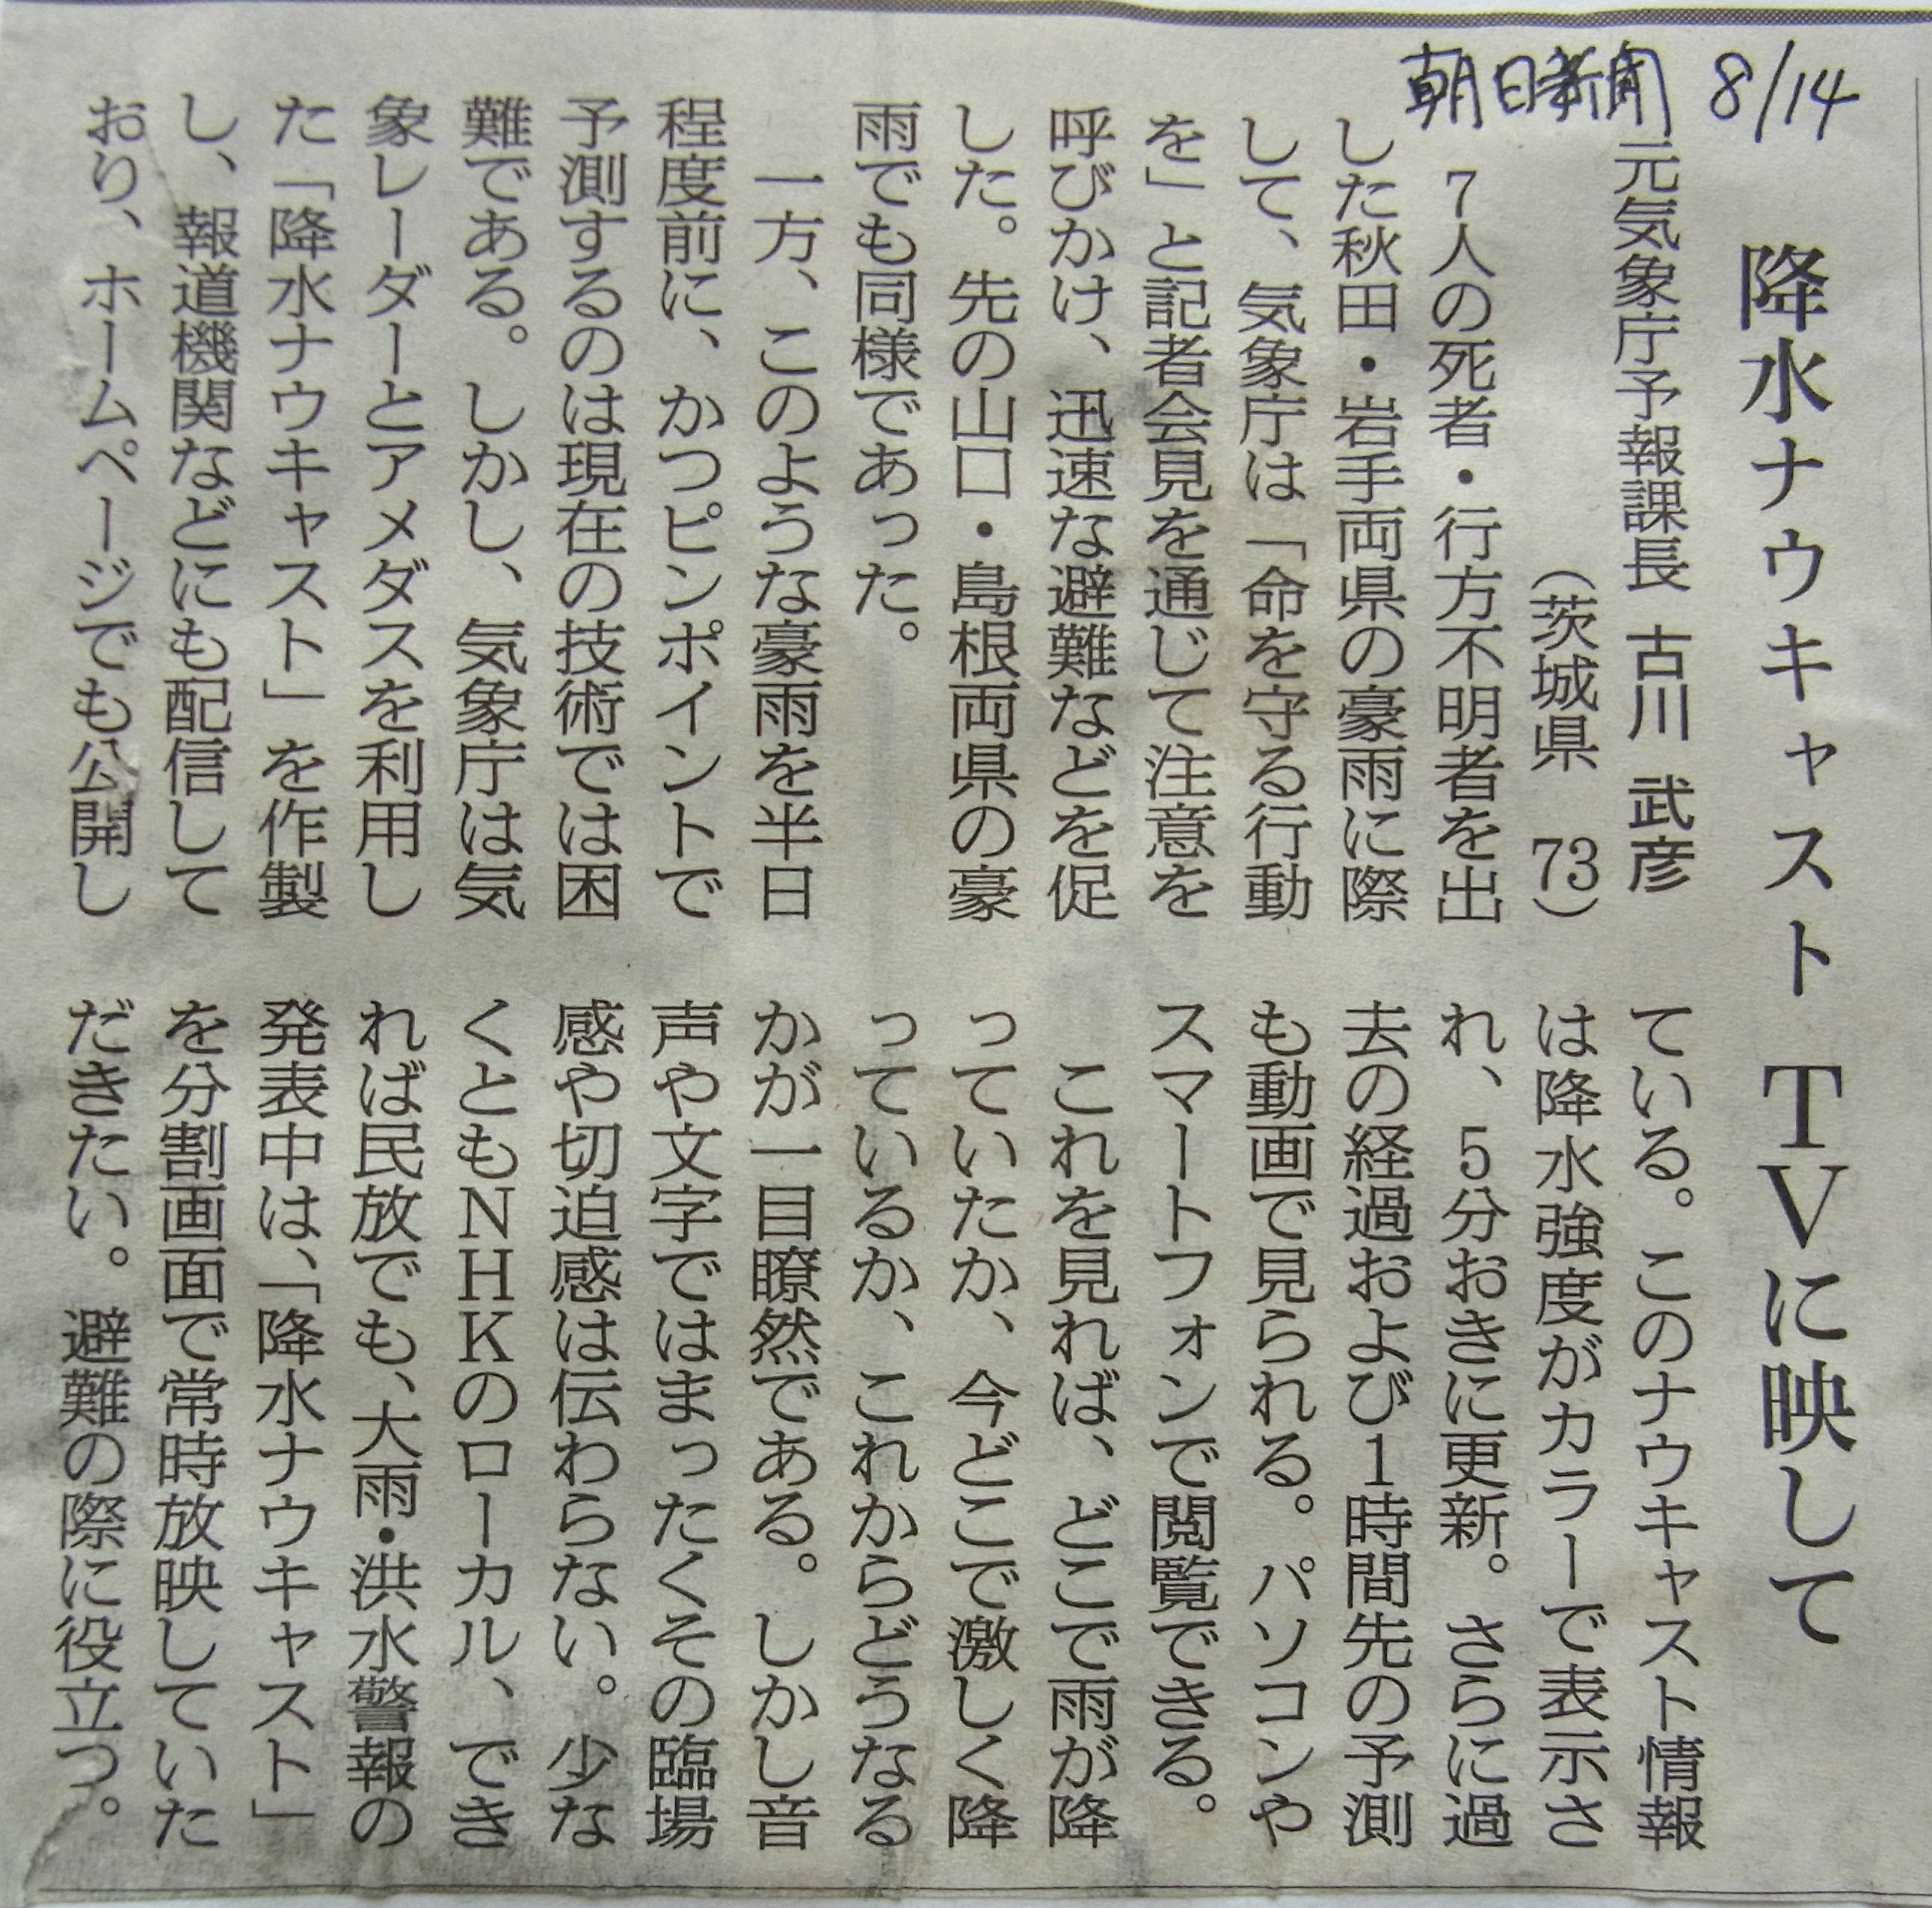 朝日新聞 8/14
降水ナウキャスト TVに映して
元気象庁予報課長 古川 武彦
(茨城県 73)
7人の死者・行方不明者を出
した秋田・岩手両県の豪雨に際
して、気象庁は「命を守る行動
を」と記者会見を通じて注意を
呼びかけ、迅速な避難などを促
した。先の山口・島根両県の豪
雨でも同様であった。
一方、このような豪雨を半日
程度前に、かつピンポイントで
予測するのは現在の技術では困
難である。しかし、気象庁は気
象レーダーとアメダスを利用し
た「降水ナウキャスト」を作製
し、報道機関などにも配信して
おり、ホームページでも公開し
ている。このナウキャスト情報
は降水強度がカラーで表示さ
れ、5分おきに更新。さらに過
去の経過および1時間先の予測
も動画で見られる。パソコンや
スマートフォンで閲覧できる。
これを見れば、どこで雨が降
っていたか、今どこで激しく降
っているか、これからどうなる
かが一目瞭然である。しかし音
声や文字ではまったくその臨場
感や切迫感は伝わらない。少な
くともNHKのローカル、でき
れば民放でも、大雨・洪水警報の
発表中は、「降水ナウキャスト」
を分割画面で常時放映していた
だきたい。避難の際に役立つ。